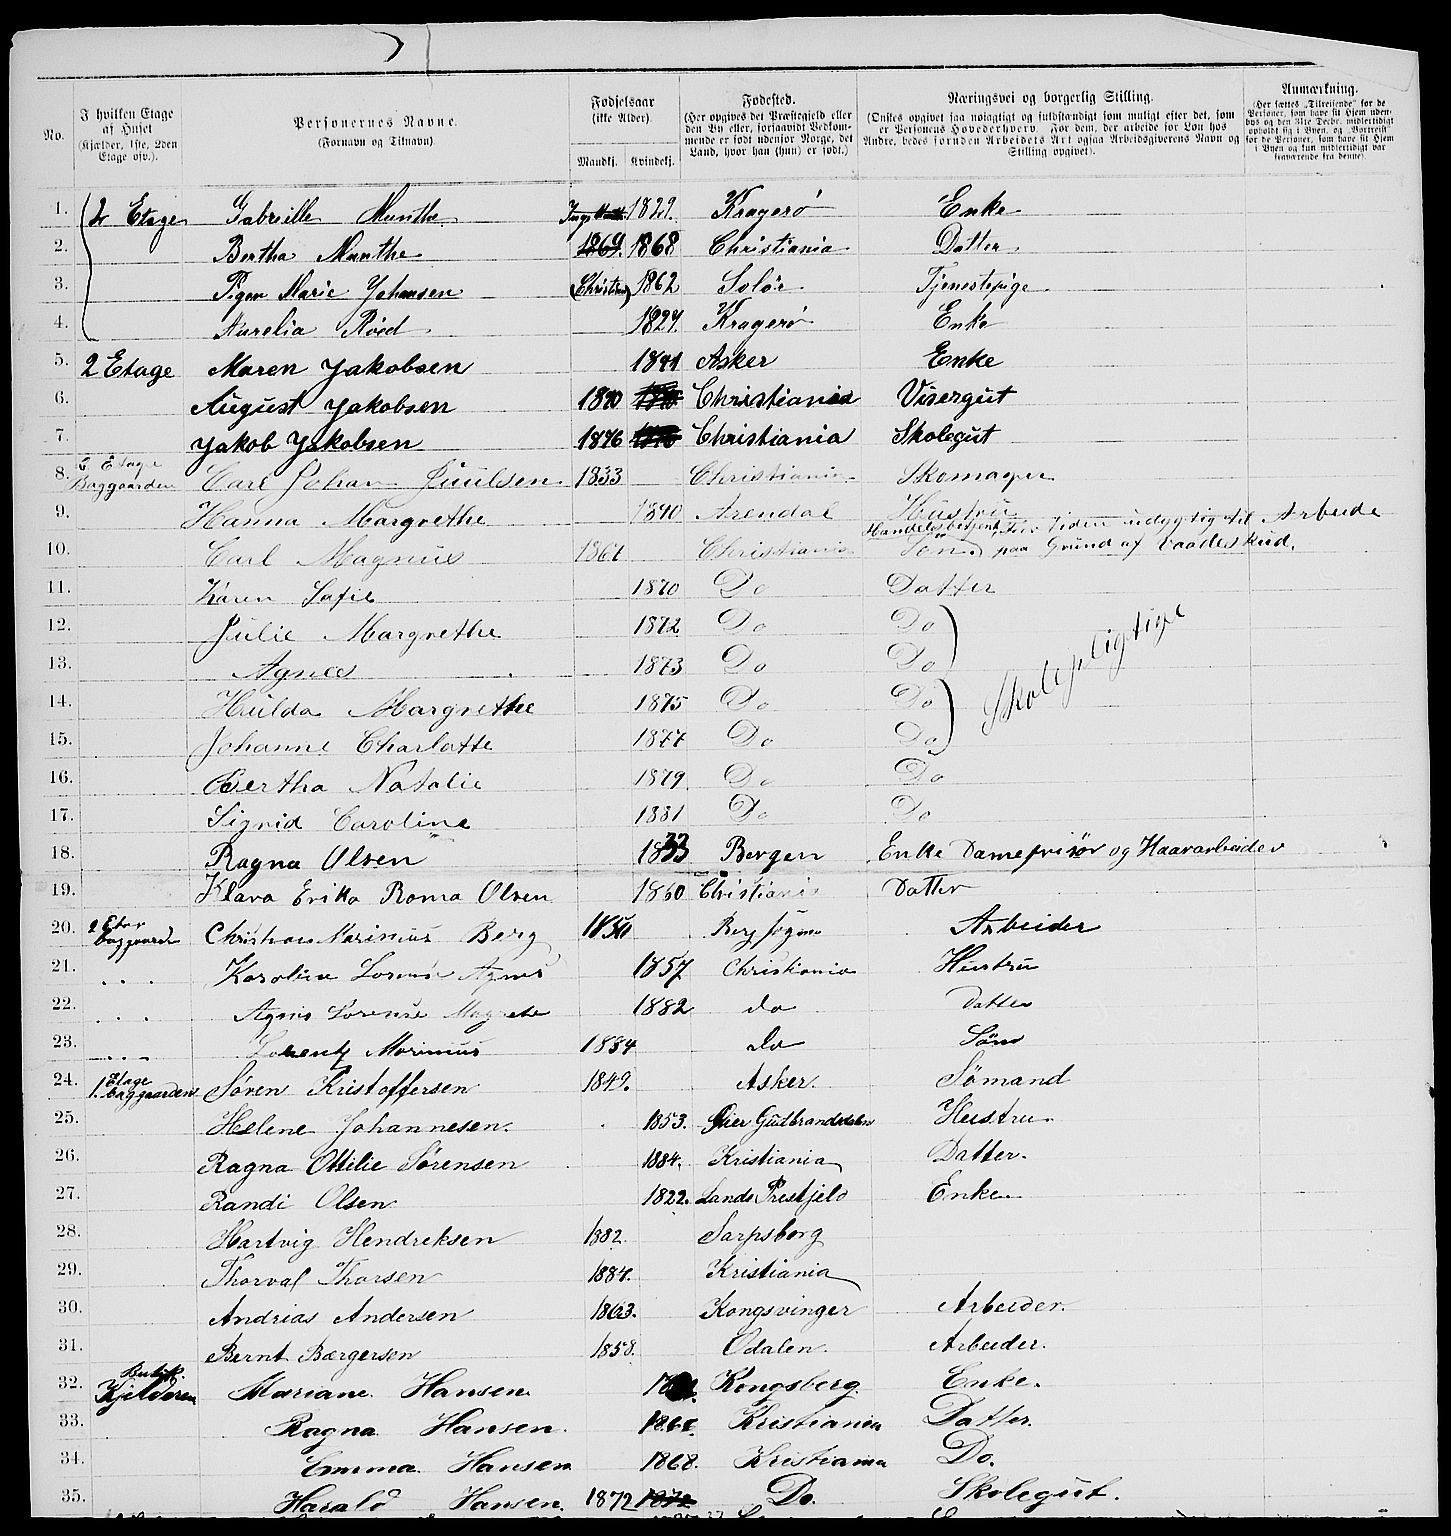 No.
I hvilken Etage af Huset (Kjælder, 1ste, 2den Etage osv.).
Personernes Navne. (Fornavn og Tilnavn).
Fødselsaar (ikke Alder). Mandkj. Kvindekj.
Fødested. (Her opgives det Præstegjeld eller den By eller, forsaavidt Vedkommende er født udenfor Norge, det Land, hvor han (hun) er født.)
Næringsvei og borgerlig Stilling. (Ønskes opgivet saa nøiagtigt og fuldstændigt som muligt efter det, som er Personens Hovederhverv. For dem, der arbeide for Løn hos Andre, bedes foruden Arbeidets Art ogsaa Arbeidsgiverens Navn og Stilling opgivet).
Anmærkning. (Her sættes „Tilreisende" for de Personer, som have sit Hjem udenbys og den 31te Decbr. midlertidigt opholdt sig i Byen, og „Bortreist" for de Personer, som have sit Hjem i Byen og kun midlertidigt var fraværende fra denne).
1. 2 Etage Gabrielle Munthe 1829. Kragerö Enke
2. Bertha Munthe 1869. 1868 Christiania Datter
3. Pigen Marie Johansen (Christian) 1862 Solör Tjenestepige
4. Aurelia Röed 1827. Kragerö Enke
5. 2 Etage Maren Jakobsen 1841 Asker Enke
6. August Jakobsen 1870 Christiania Visergut
7. Jakob Jakobsen 1876 Christiania Skolegut
8. Etage Baggaarden Carl Johan Juulsen 1833 Christiania Skomager
9. Hanna Margrethe 1840 Arendal Hustru
Handelsbetjent, for Tiden udygtig til Arbeide
10. Carl Magnus 1867 Christiania Sön. paa Grund af Vaadeskud.
11. Karen Sofie 1870 Do Datter
12. Julie Margrethe 1872 Do Do
13. Agnes 1873 Do Do
Skolepligtige
14. Hulda Margrethe 1875 Do Do
15. Johanne Charlotte 1877 Do Do
16. Bertha Natalie 1879 Do Do
17. Sigrid Caroline 1881 Do Do
18. Ragna Olsen 1833 Bergen Enke Damefrisör og Haararbeider
19. Klara Erika Roma Olsen 1860 Christiania Datter
20. 2 Etag baggaarde Christian Marinius Berg 1850 Berg sogn Arbeider
21. . . . Karoline Lorense Agnes 1857 Christiania Hustru
22. . . . Agnes Lorense Magrete 1882 do Datter
23. . . . Lorentz Marinius 1884 do Sön
24. 1. Etage baggaarden Sören Kristoffersen 1849. Asker. Sömand
25. Helene Johannesen. 1853. Öier Gudbrandsdalen Hustru.
26. Ragna Ottilie Sørensen 1884. Kristiania Datter.
27. Randi Olsen 1822. Lands Prestjeld Enke
28. Hartvig Hendreksen 1882. Sarpsborg
29. Thorval Thorsen 1884. Kristiania
30. Andrias Andersen 1863. Kongsvinger Arbeider.
31. Bernt Børgersen 1858. Odalen. Arbeider.
32. Butik. Kjelderen Mariane Hansen Kongsberg. Enke.
33. Ragna Hansen. Kristiania Datter
34. Emma Hansen 1868. Kristiania Do.
35. Harald Hansen. 1872 1872 Do. Skolegut.